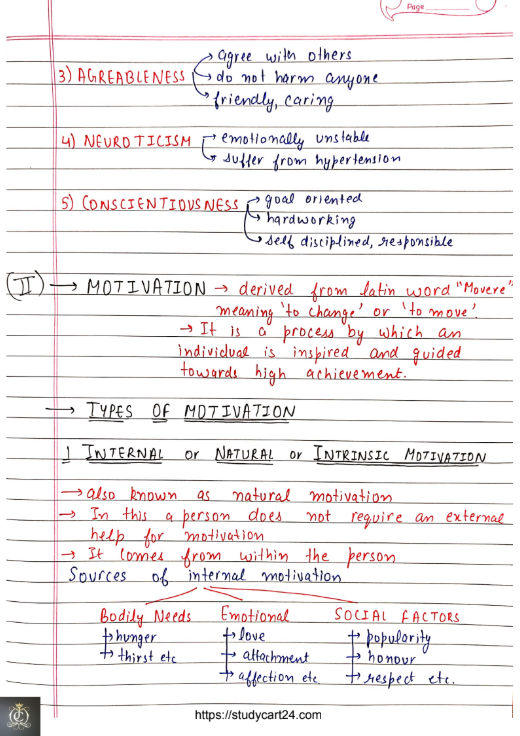 Page
→ agree with others
3) AGREABLENESS → do not harm anyone
→ friendly, caring
4) NEUROTICISM → emotionally unstable
→ suffer from hypertension
5) CONSCIENTIOUSNESS → goal oriented
→ hardworking
→ self disciplined, responsible
(II) → MOTIVATION → derived from latin word "Movere"
meaning 'to change' or 'to move'.
→ It is a process by which an
individual is inspired and guided
towards high achievement.
→ TYPES OF MOTIVATION
1 INTERNAL or NATURAL or INTRINSIC MOTIVATION
→ also known as natural motivation
→ In this a person does not require an external
help for motivation
→ It comes from within the person
Sources of internal motivation
Bodily Needs Emotional SOCIAL FACTORS
→ hunger → love → popularity
→ thirst etc → attachment → honour
→ affection etc. → respect etc.
https://studycart24.com